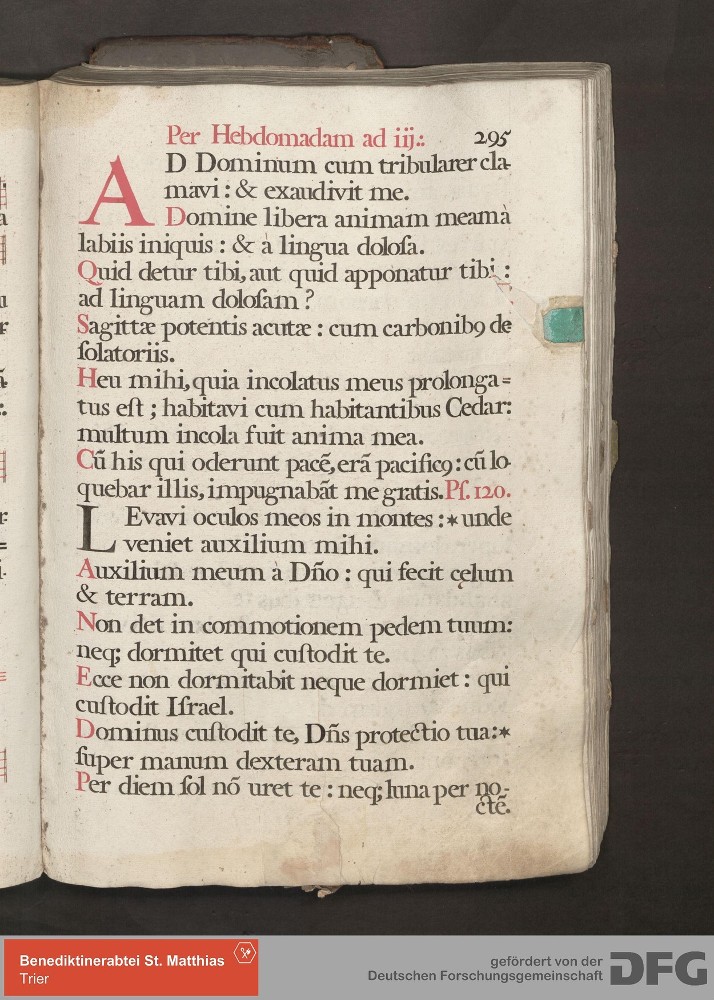 Per Hebdomadam ad iij.: 295
AD Dominum cum tribularer cla-
mavi : & exaudivit me.
Domine libera animam meam à
labiis iniquis : & à lingua doloſa.
Quid detur tibi, aut quid apponatur tibi :
ad linguam doloſam ?
Sagittæ potentis acutæ : cum carbonibꝯ de
ſolatoriis.
Heu mihi, quia incolatus meus prolonga=
tus eſt ; habitavi cum habitantibus Cedar:
multum incola fuit anima mea.
Cũ his qui oderunt pacẽ, erã pacificꝯ : cũ lo-
quebar illis, impugnabãt me gratis. Pſ. 120.
LEvavi oculos meos in montes : * unde
veniet auxilium mihi.
Auxilium meum à Dño : qui fecit cęlum
& terram.
Non det in commotionem pedem tuum:
neq; dormitet qui cuſtodit te.
Ecce non dormitabit neque dormiet : qui
cuſtodit Iſrael.
Dominus cuſtodit te, Dñs protectio tua:*
ſuper manum dexteram tuam.
Per diem ſol nõ uret te : neq; luna per no-
ctẽ.
Benediktinerabtei St. Matthias
Trier
gefördert von der
Deutschen Forschungsgemeinschaft DFG